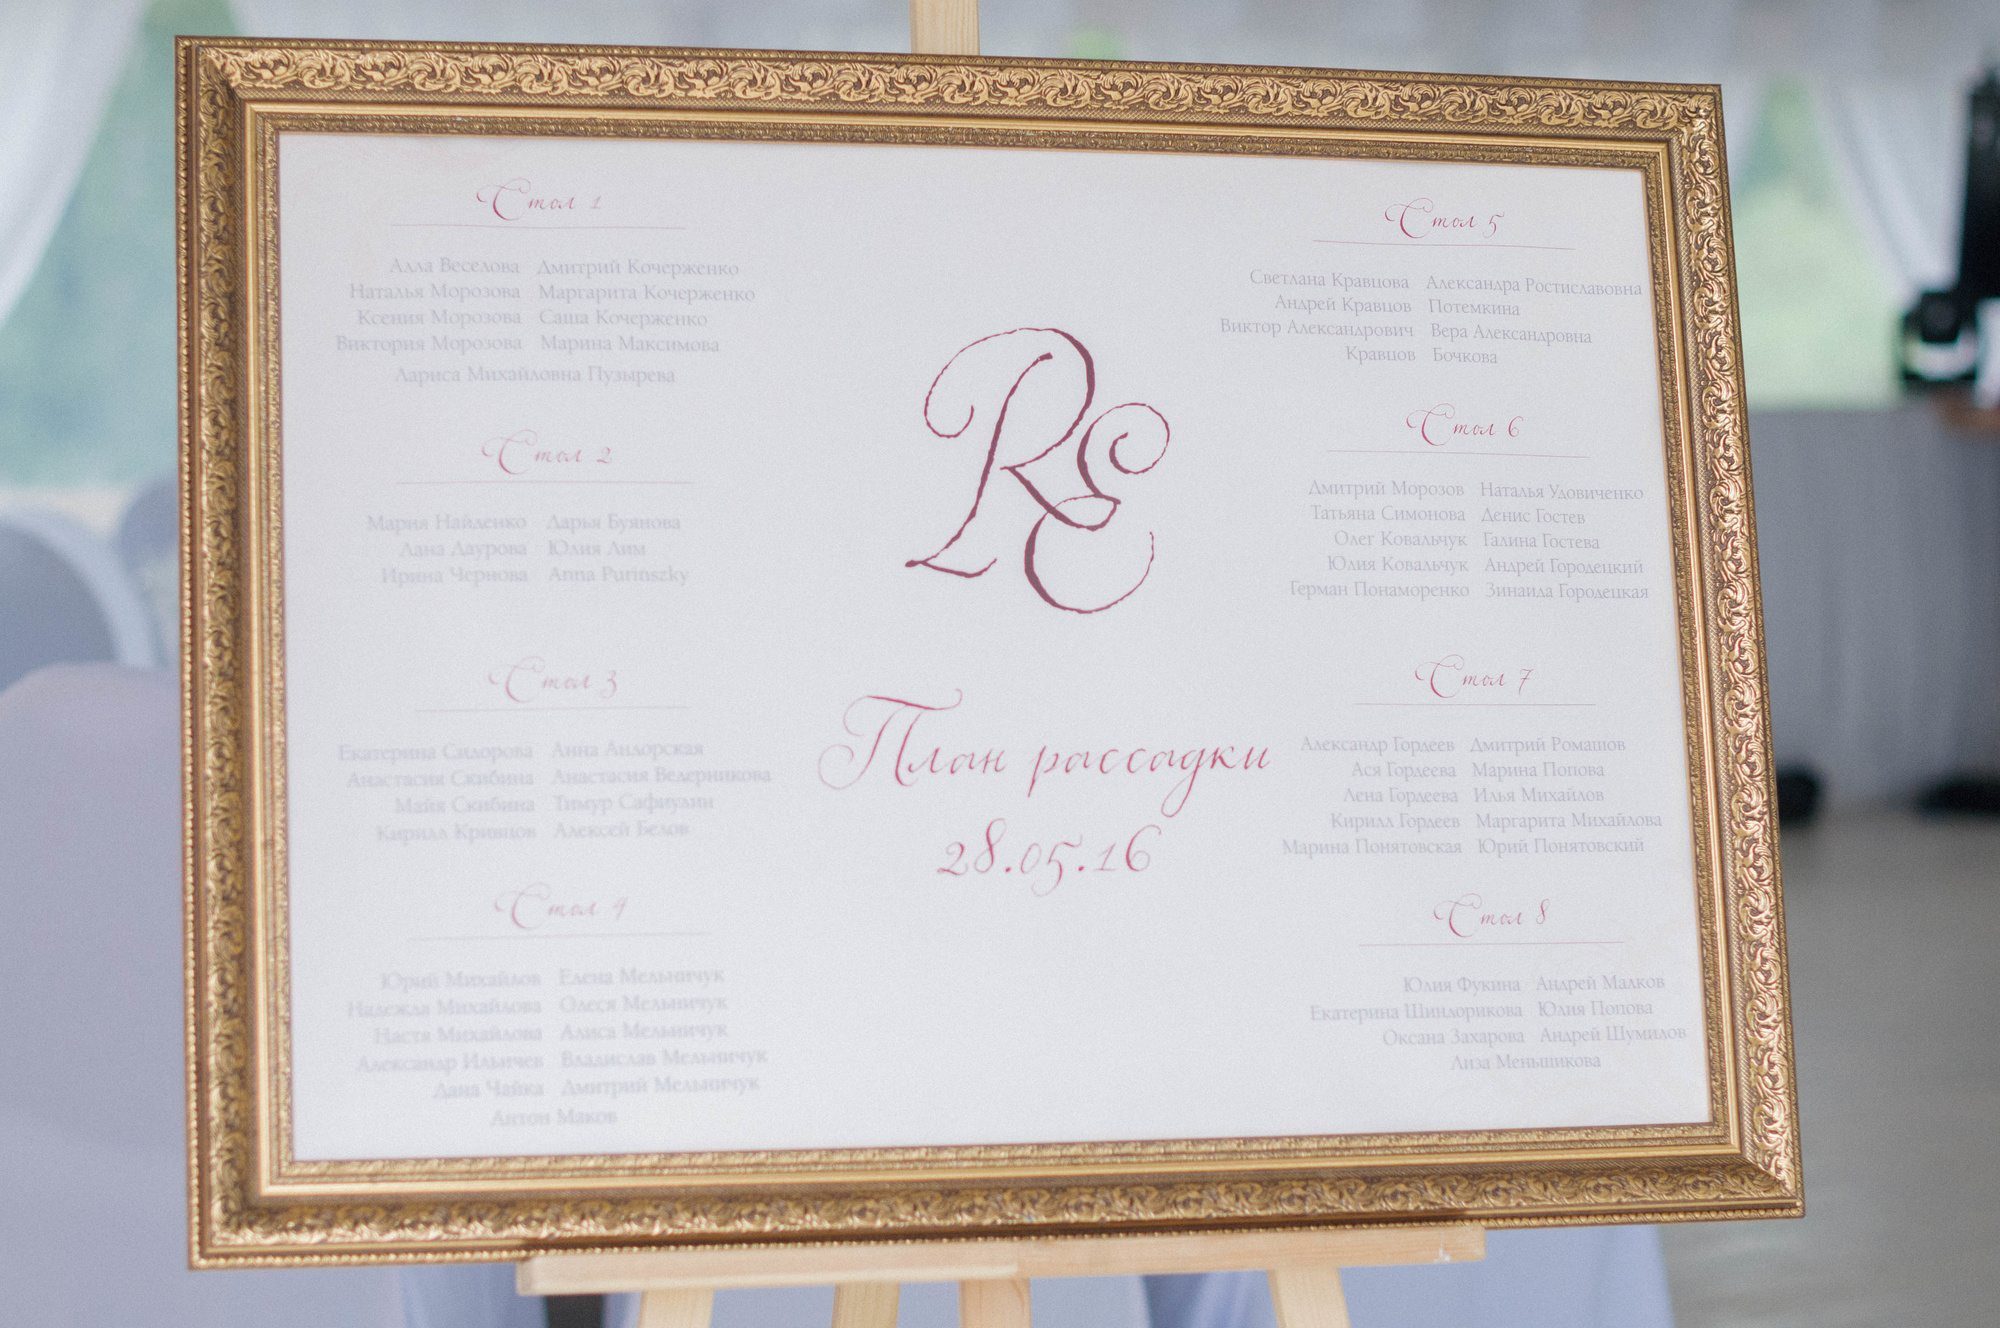 Стол 1
Алла Веселова Дмитрий Кочерженко
Наталья Морозова Маргарита Кочерженко
Ксения Морозова Саша Кочерженко
Виктория Морозова Марина Максимова
Лариса Михайловна Пузырева
Стол 2
Мария Найденко Дарья Буянова
Лана Даурова Юлия Лим
Ирина Чернова Anna Purinszky
Стол 3
Екатерина Сидорова Анна Андорская
Анастасия Скибина Анастасия Ведерникова
Майя Скибина Тимур Сафиулин
Кирилл Кривцов Алексей Белов
Стол 4
Юрий Михайлов Елена Мельничук
Надежда Михайлова Олеся Мельничук
Настя Михайлова Алиса Мельничук
Александр Ильичев Владислав Мельничук
Лана Чайка Дмитрий Мельничук
Антон Маков
RE
План рассадки
28.05.16
Стол 5
Светлана Кравцова Александра Ростиславовна
Андрей Кравцов Потемкина
Виктор Александрович Вера Александровна
Кравцов Бочкова
Стол 6
Дмитрий Морозов Наталья Удовиченко
Татьяна Симонова Денис Гостев
Олег Ковальчук Галина Гостева
Юлия Ковальчук Андрей Городецкий
Герман Понаморенко Зинаида Городецкая
Стол 7
Александр Гордеев Дмитрий Ромашов
Ася Гордеева Марина Попова
Лена Гордеева Илья Михайлов
Кирилл Гордеев Маргарита Михайлова
Марина Понятовская Юрий Понятовский
Стол 8
Юлия Фукина Андрей Малков
Екатерина Шиндорикова Юлия Попова
Оксана Захарова Андрей Шумилов
Лиза Меньшикова